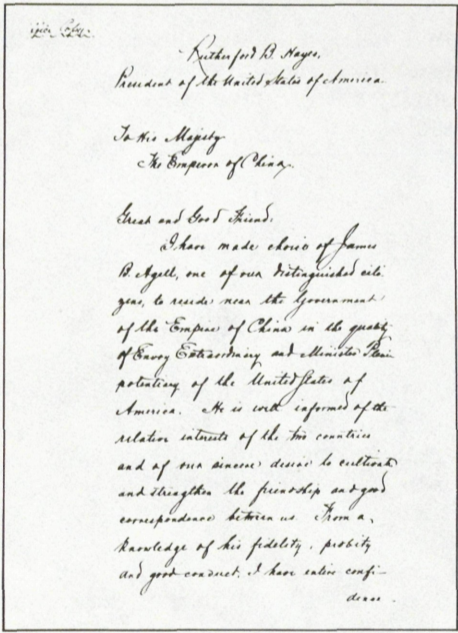 Rutherford B. Hayes,
President of the United States of America
To His Majesty
The Emperor of China,
Great and Good Friend:
I have made choice of James
B. Agell, one of our distinguished citi-
zens, to reside near the Government
of the Empire of China in the quality
of Envoy Extraordinary and Minister Pleni-
potentiary of the United States of
America. He is well informed of the
relative interests of the two countries
and of our sincere desire to cultivate
and strengthen the friendship and good
correspondence between us. From a
knowledge of his fidelity, probity
and good conduct, I have entire confi-
dence